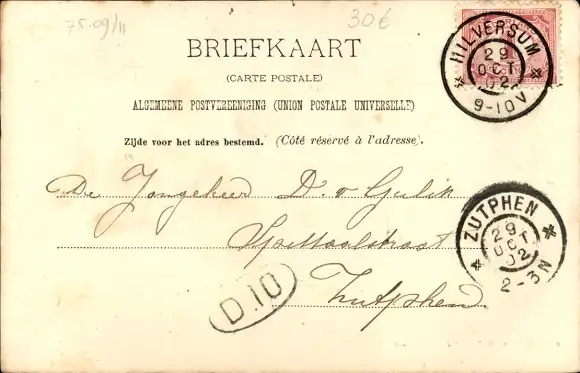 75.09/11
30€
BRIEFKAART
(CARTE POSTALE)
ALGEMEENE POSTVEREENIGING (UNION POSTALE UNIVERSELLE)
Zijde voor het adres bestemd. (Côté réservé à l'adresse).
HILVERSUM
29
OCT
02
9-10V
De Jongeheer D. v Gulik
Spittaalstraat
Zutphen
ZUTPHEN
29
OCT
02
2-3N
D.10